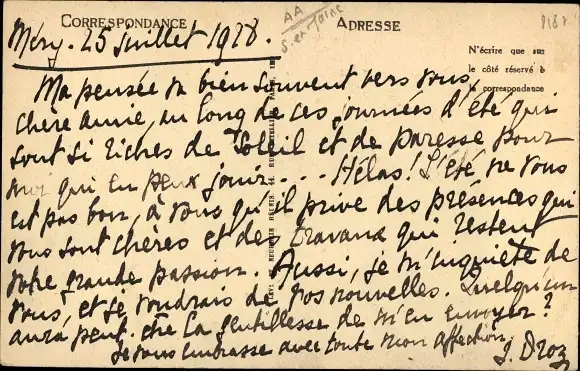 CORRESPONDANCE
ADRESSE
AA
S. et Marne
N'écrire que sur
le côté réservé à
la correspondance
Méry. 25 juillet 1928.
Ma pensée va bien souvent vers vous,
chère amie, au long de ces journées d'été qui
sont si riches de soleil et de paresse pour
moi qui en peux jouir.... Hélas! L'été ne vous
est pas bon, à vous qu'il prive des présences qui
vous sont chères et des travaux qui restent
votre grande passion. Aussi, je m'inquiète de
vous, et je voudrais de vos nouvelles. Quelqu'un
aura peut-être la gentillesse de m'en envoyer?
Je vous embrasse avec toute mon affection.
J. Droz